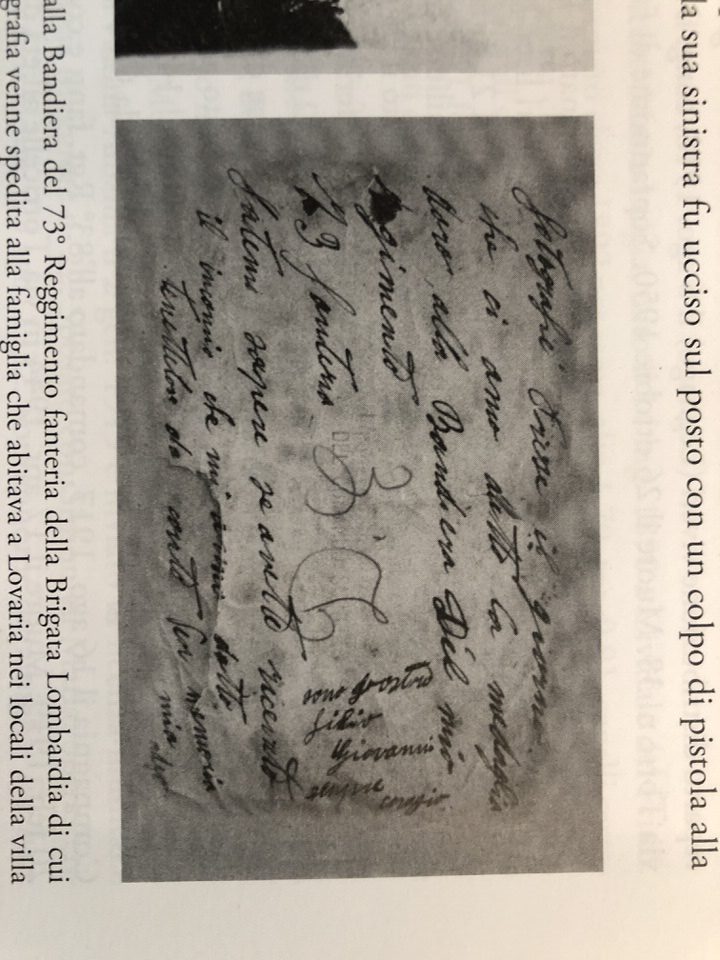 la sua sinistra fu ucciso sul posto con un colpo di pistola alla
Fotografie Prese il giorno
che ci amo datto la medaglia
doro alla Bandiera Del mio
gimento
73 fanteria
sono vostro
filio
Giovanni
sempre
coragio
fatemi sapere se avette ricevuto
il che mi datto
da conto Per memoria
mia
alla Bandiera del 73° Reggimento fanteria della Brigata Lombardia di cui
grafia venne spedita alla famiglia che abitava a Lovaria nei locali della villa